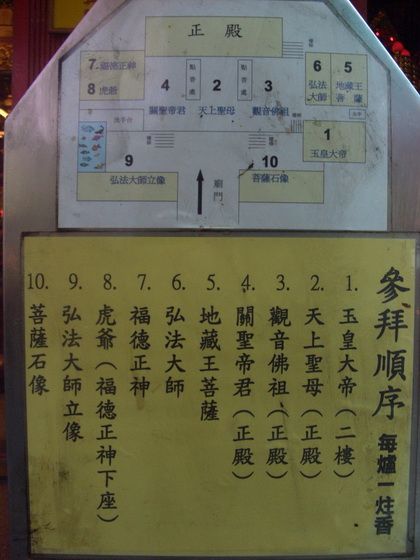 正殿
7.福德正神
8 虎爺
4
關聖帝君
點香處
2
天上聖母
點香處
3
觀音佛祖
6
弘法大師
5
地藏王菩薩
1
玉皇大帝
9
弘法大師立像
10
菩薩石像
廟門
參拜順序 每爐一炷香
1. 玉皇大帝(二樓)
2. 天上聖母(正殿)
3. 觀音佛祖(正殿)
4. 關聖帝君(正殿)
5. 地藏王菩薩
6. 弘法大師
7. 福德正神
8. 虎爺(福德正神下座)
9. 弘法大師立像
10. 菩薩石像